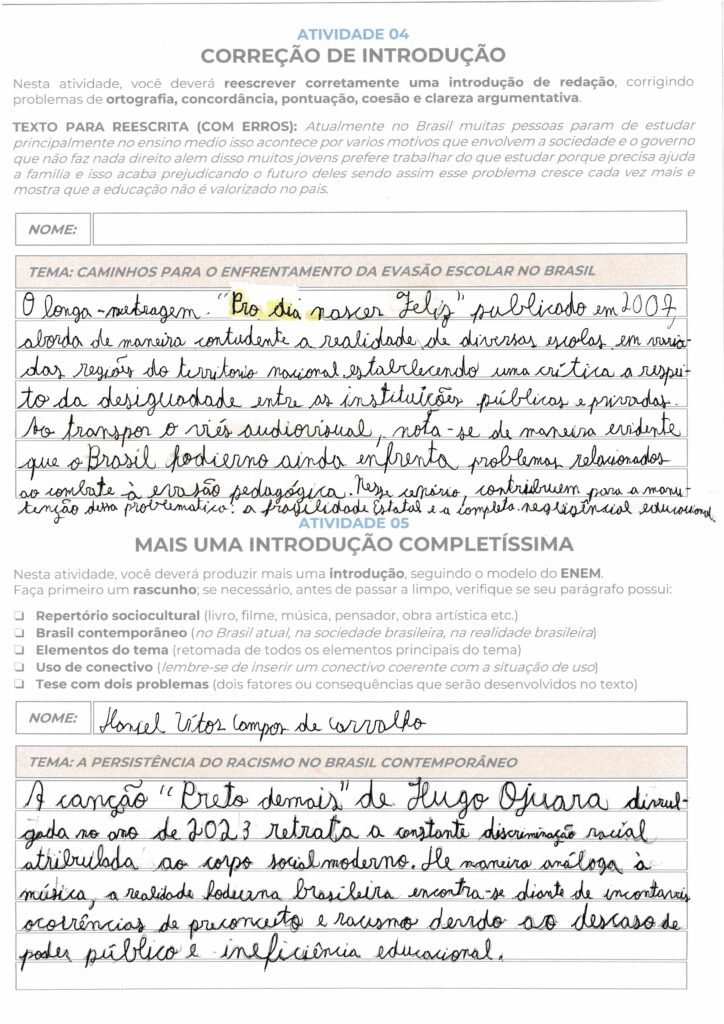 ATIVIDADE 04
CORREÇÃO DE INTRODUÇÃO
Nesta atividade, você deverá reescrever corretamente uma introdução de redação, corrigindo
problemas de ortografia, concordância, pontuação, coesão e clareza argumentativa.
TEXTO PARA REESCRITA (COM ERROS): Atualmente no Brasil muitas pessoas param de estudar
principalmente no ensino medio isso acontece por varios motivos que envolvem a sociedade e o governo
que não faz nada direito alem disso muitos jovens prefere trabalhar do que estudar porque precisa ajuda
a familia e isso acaba prejudicando o futuro deles sendo assim esse problema cresce cada vez mais e
mostra que a educação não é valorizado no pais.
NOME:
TEMA: CAMINHOS PARA O ENFRENTAMENTO DA EVASÃO ESCOLAR NO BRASIL
O longa-metragem. "Pro dia nascer Feliz" publicado em 2007,
aborda de maneira contudente a realidade de diversas escolas em varia-
das regiões do territorio nacional estabelecendo uma crítica a respei-
to da desiguadade entre as instituições públicas e privadas.
Ao transpor o viés audiovisual, nota-se de maneira evidente
que o Brasil hodierno ainda enfrenta problemas relacionados
ao combate à evasão pedagógica. Nesse cenário, contribuem para a manu-
tenção dessa problematica: a fragilidade Estatal e a completa negligêncial educacional.
ATIVIDADE 05
MAIS UMA INTRODUÇÃO COMPLETÍSSIMA
Nesta atividade, você deverá produzir mais uma introdução, seguindo o modelo do ENEM.
Faça primeiro um rascunho; se necessário, antes de passar a limpo, verifique se seu parágrafo possui:
❏ Repertório sociocultural (livro, filme, música, pensador, obra artística etc.)
❏ Brasil contemporâneo (no Brasil atual, na sociedade brasileira, na realidade brasileira)
❏ Elementos do tema (retomada de todos os elementos principais do tema)
❏ Uso de conectivo (lembre-se de inserir um conectivo coerente com a situação de uso)
❏ Tese com dois problemas (dois fatores ou consequências que serão desenvolvidos no texto)
NOME: Vitor Campos de Carvalho
TEMA: A PERSISTÊNCIA DO RACISMO NO BRASIL CONTEMPORÂNEO
A canção "Preto demais" de Hugo Ojuara divul-
gada no ano de 2023 retrata a constante discriminação racial
atribulada ao corpo social moderno. De maneira análoga à
música, a realidade hodierna brasileira encontra-se diante de incontaveis
ocorrências de preconceito e racismo devido ao descaso de
poder público e ineficiência educacional.